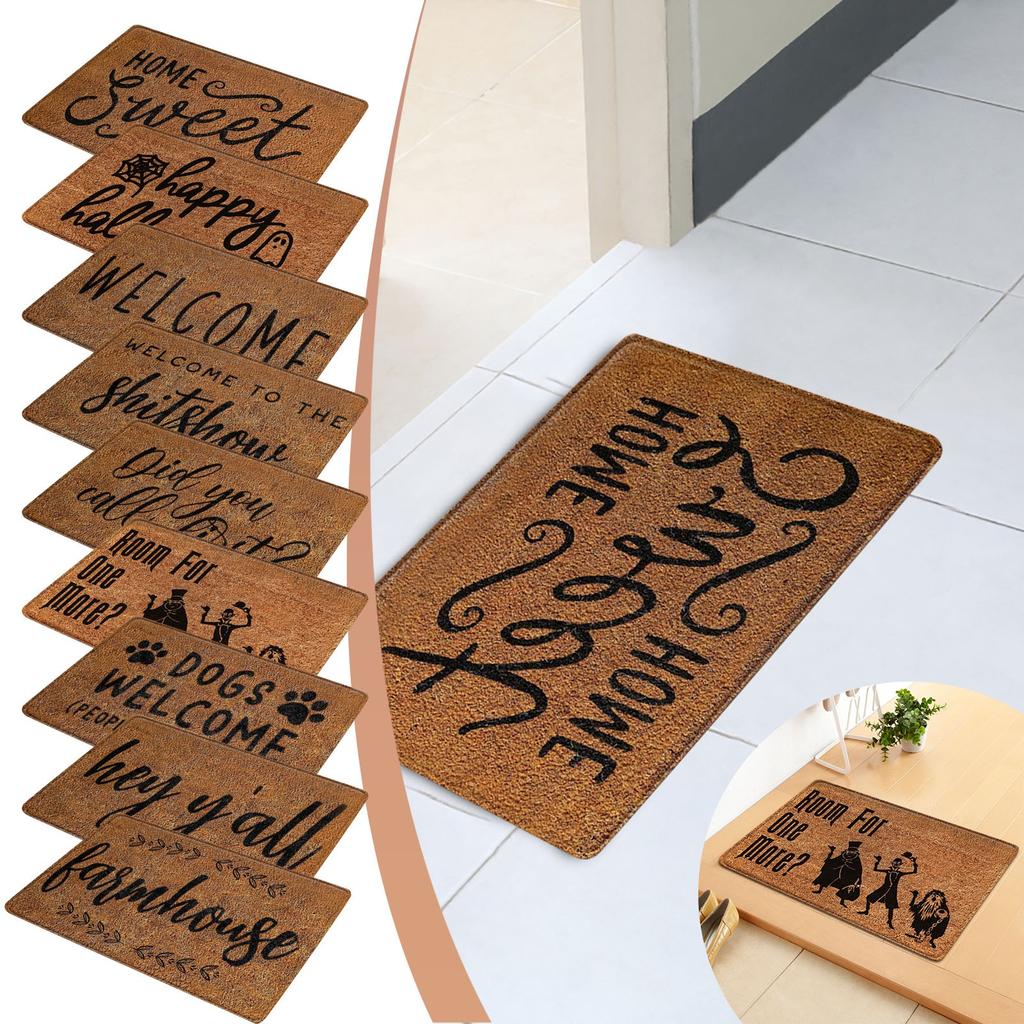 HOME
Sweet
happy
WELCOME
WELCOME TO THE
shitshow
Did you
call
Room For
One
More?
DOGS
WELCOME
(PEOPL
hey y'all
farmhouse
HOME
Sweet
HOME
Room For
One
More?